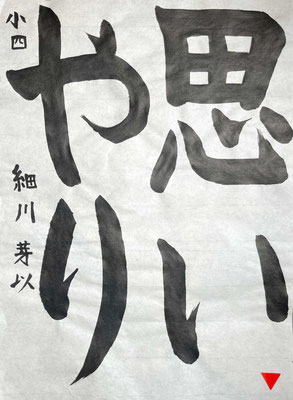 思い
やり
小四
細川芽以